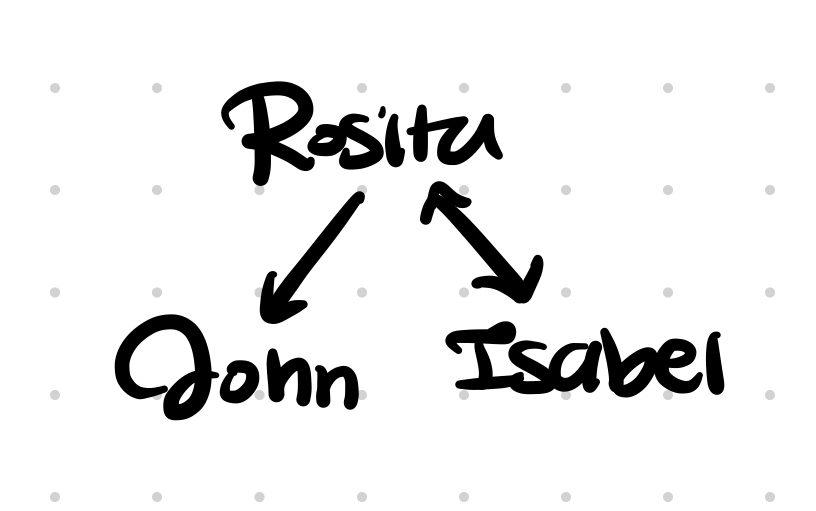 Rosita
John Isabel